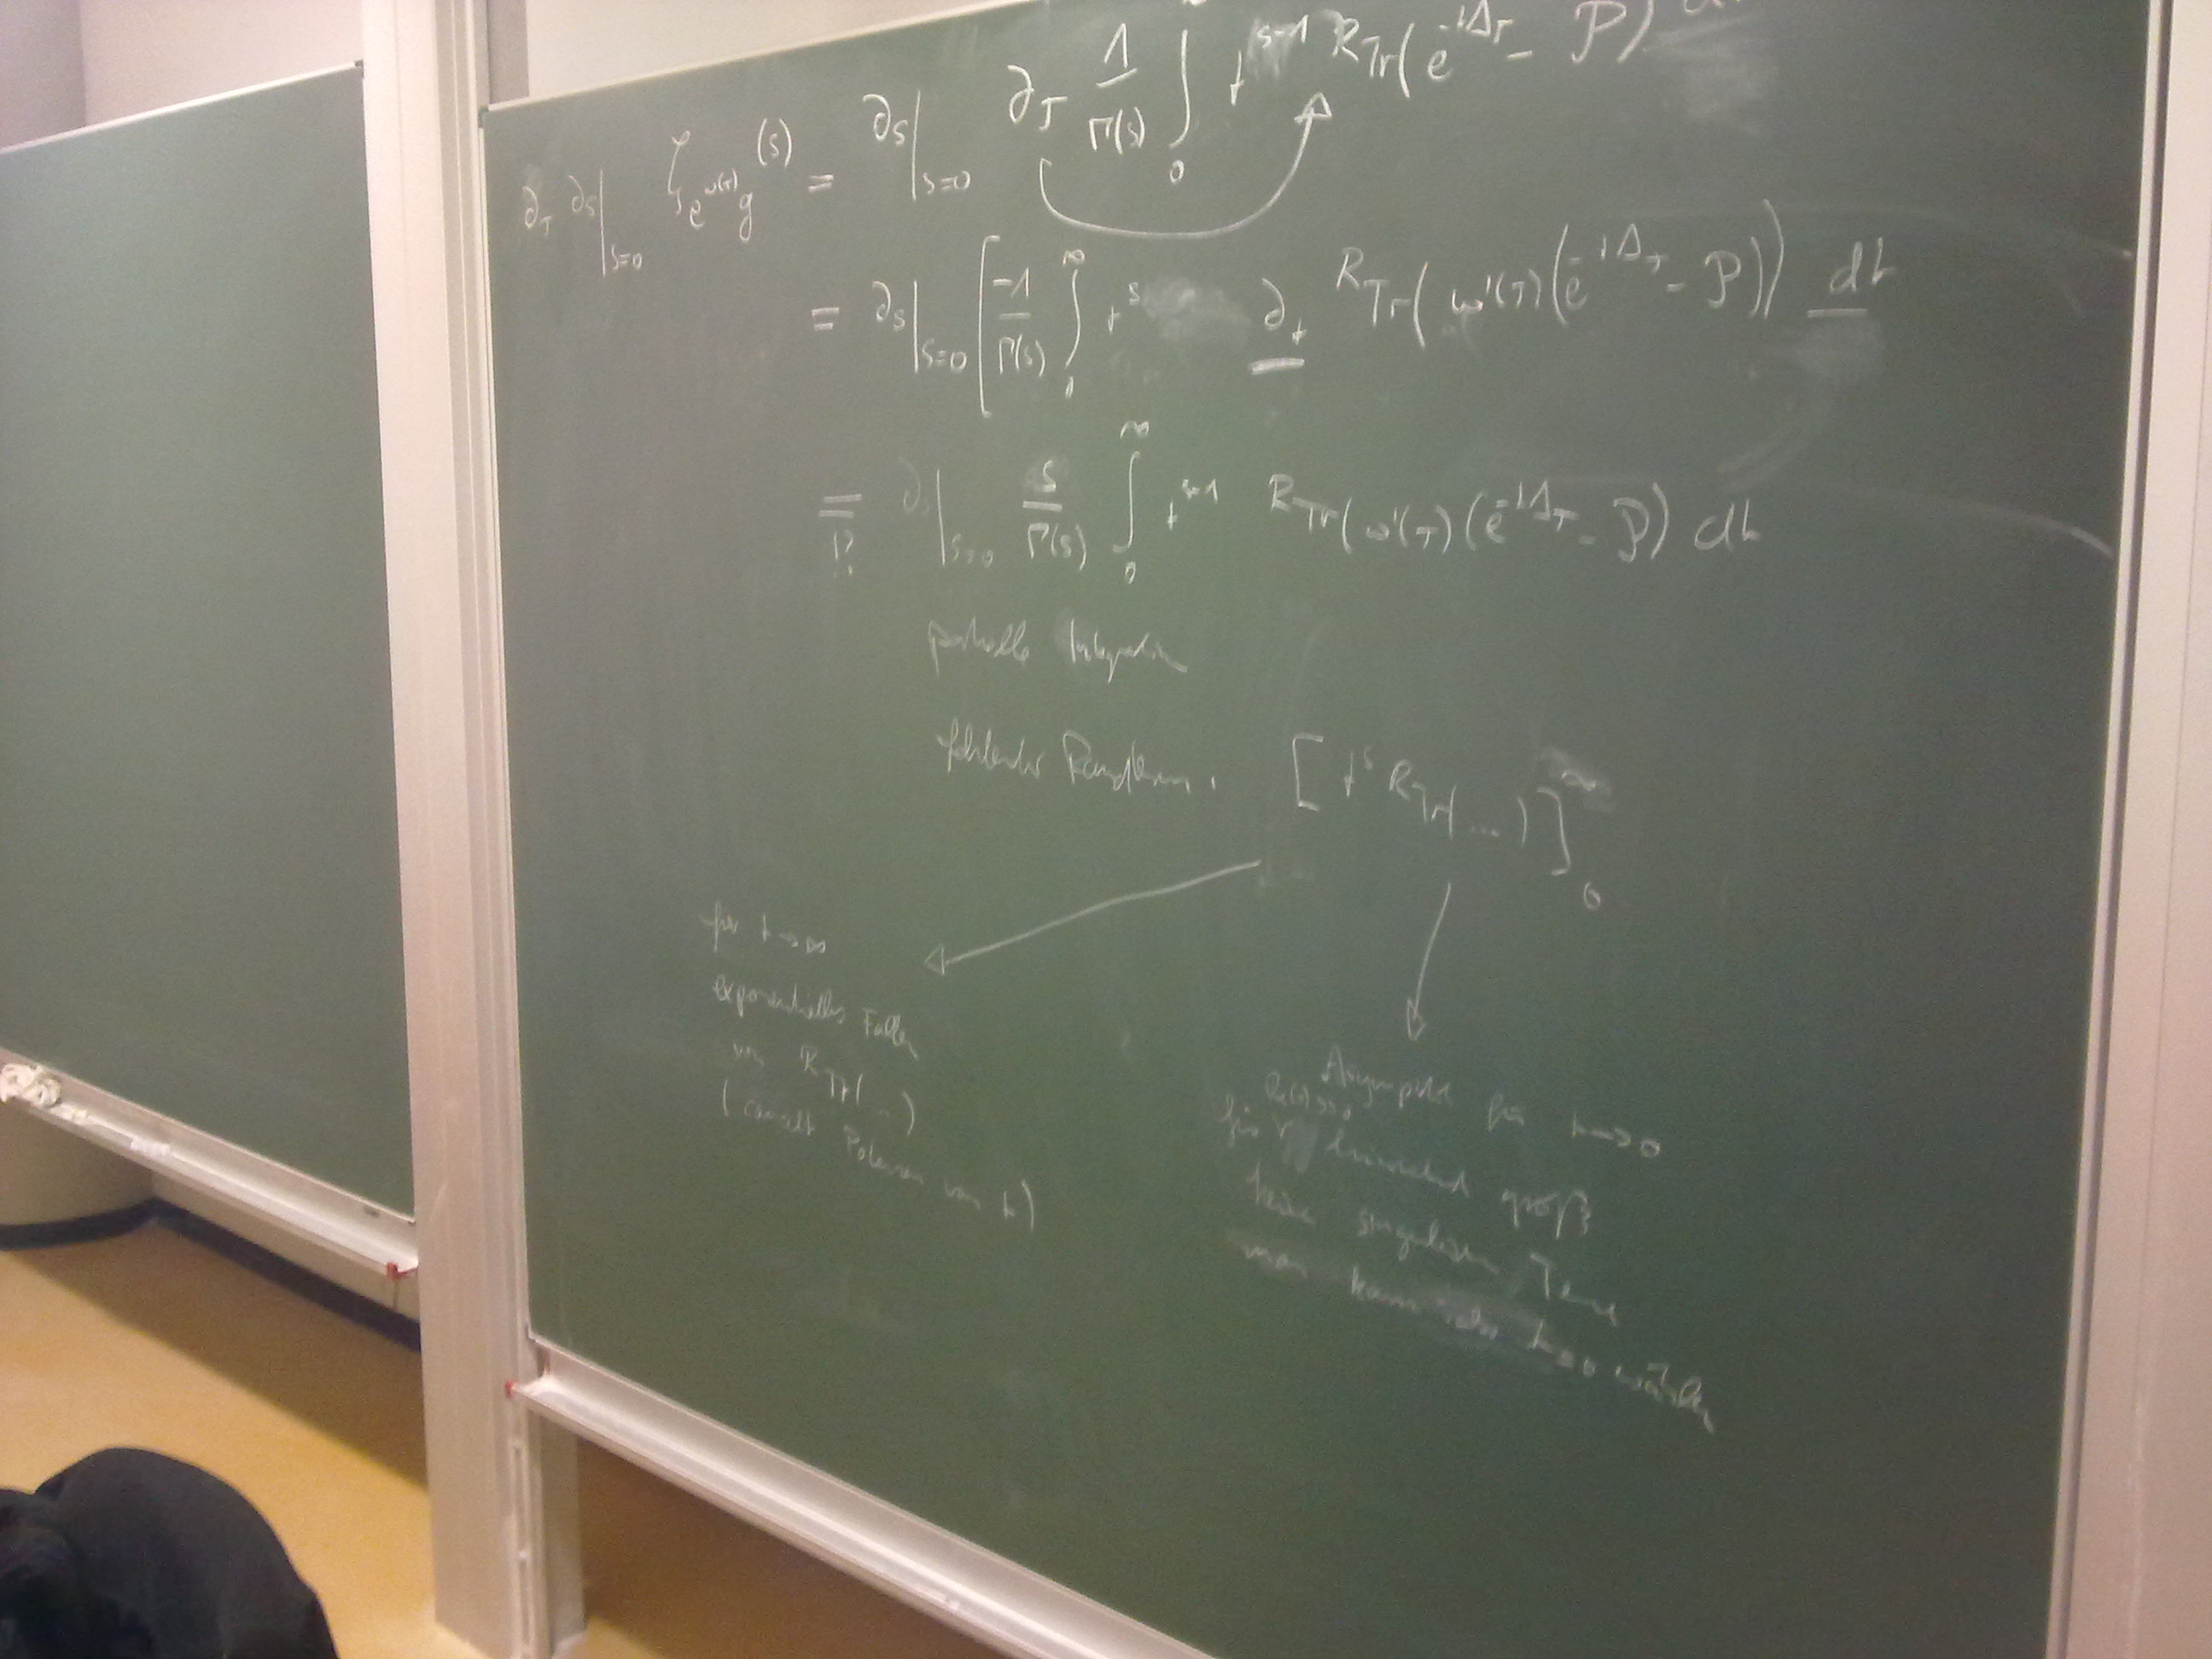 ∂_T ∂_s|_{s=0} ζ_{e^{ω(T)}g}(s) = ∂_s|_{s=0} ∂_T 1/Γ(s) ∫_0 t^{s-1} ᴿTr(e^{-tΔ_T} - P)
= ∂_s|_{s=0} [ -1/Γ(s) ∫_0^∞ t^s ∂_t ᴿTr(ω'(T)(e^{-tΔ_T} - P)) dt
= ∂_s|_{s=0} s/Γ(s) ∫_0^∞ t^{s-1} ᴿTr(ω'(T)(e^{-tΔ_T} - P) dt
partielle Integration
fehlender Randterm: [t^s ᴿTr(...)]_0^∞
für t→∞
exponentielles Fallen
von ᴿTr(...)
( Potenzen von t)
Asymptotik für t→0
für Re(s)>>0 hinreichend groß
keine singulären Terme
man kann t=0 wählen